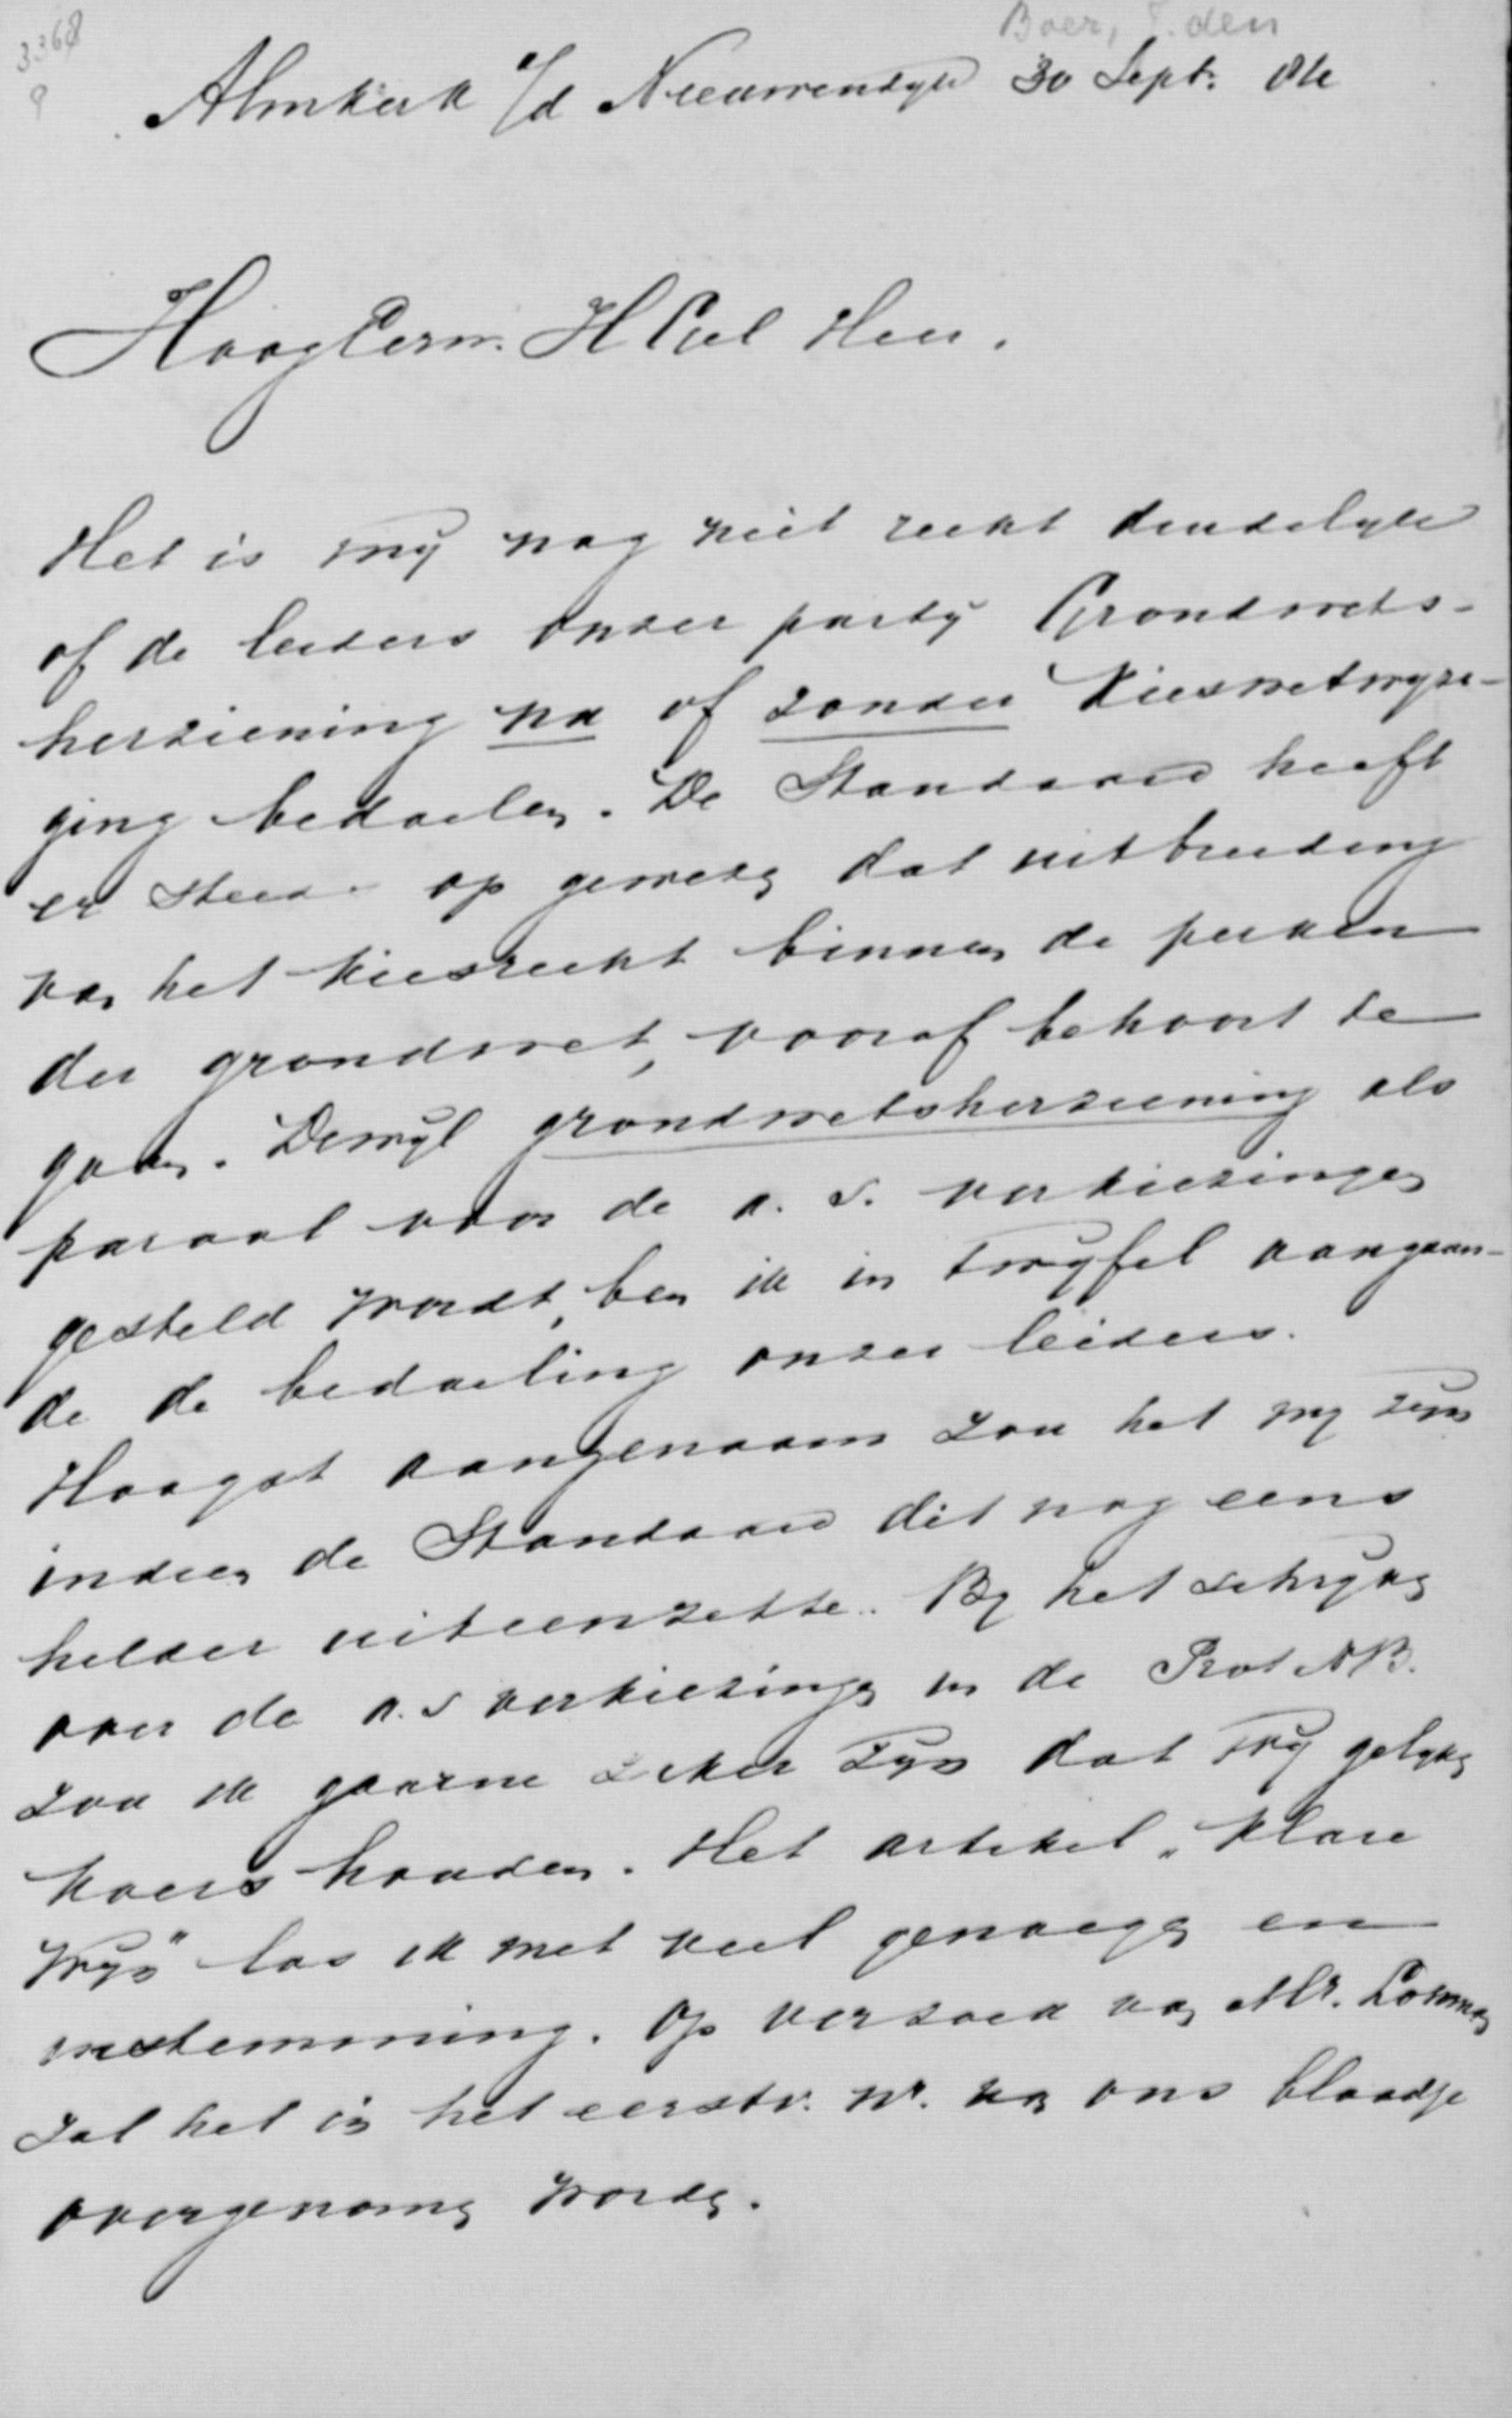 3368
9
Boer, P. den
Almkerk a/d Nieuwendyk 30 Sept.
HoogEerw. HGel Heer.
Het is my nog niet recht duidelyk
of de leiders onzer party Grondwets-
herziening na of zonder Kieswetwyzi-
ging bedoelen. De Standaard heeft
er steeds op gewezen dat uitbreiding
van het kiesrecht binnen de perken
der grondwet, vooraf behoort te
gaan. Dewyl grondwetsherziening als
parool voor de a. s. verkiezingen
gesteld wordt, ben ik in twyfel aangaan-
de de bedoeling onzer leiders.
Hoogst aangenaam zou het my zyn
indien de Standaard dit nog eens
helder uiteenzette. By het schryven
over de a.s verkiezingen in de Prov. NB.
zou ik gaarne zeker zyn dat wy gelyken
koers houden. Het artikel „Klare
Wyn" las ik met veel genoegen en
instemming. Op verzoek van Mr. Lohman
zal het in het eerstv. nr. van ons blaadje
overgenomen worden.